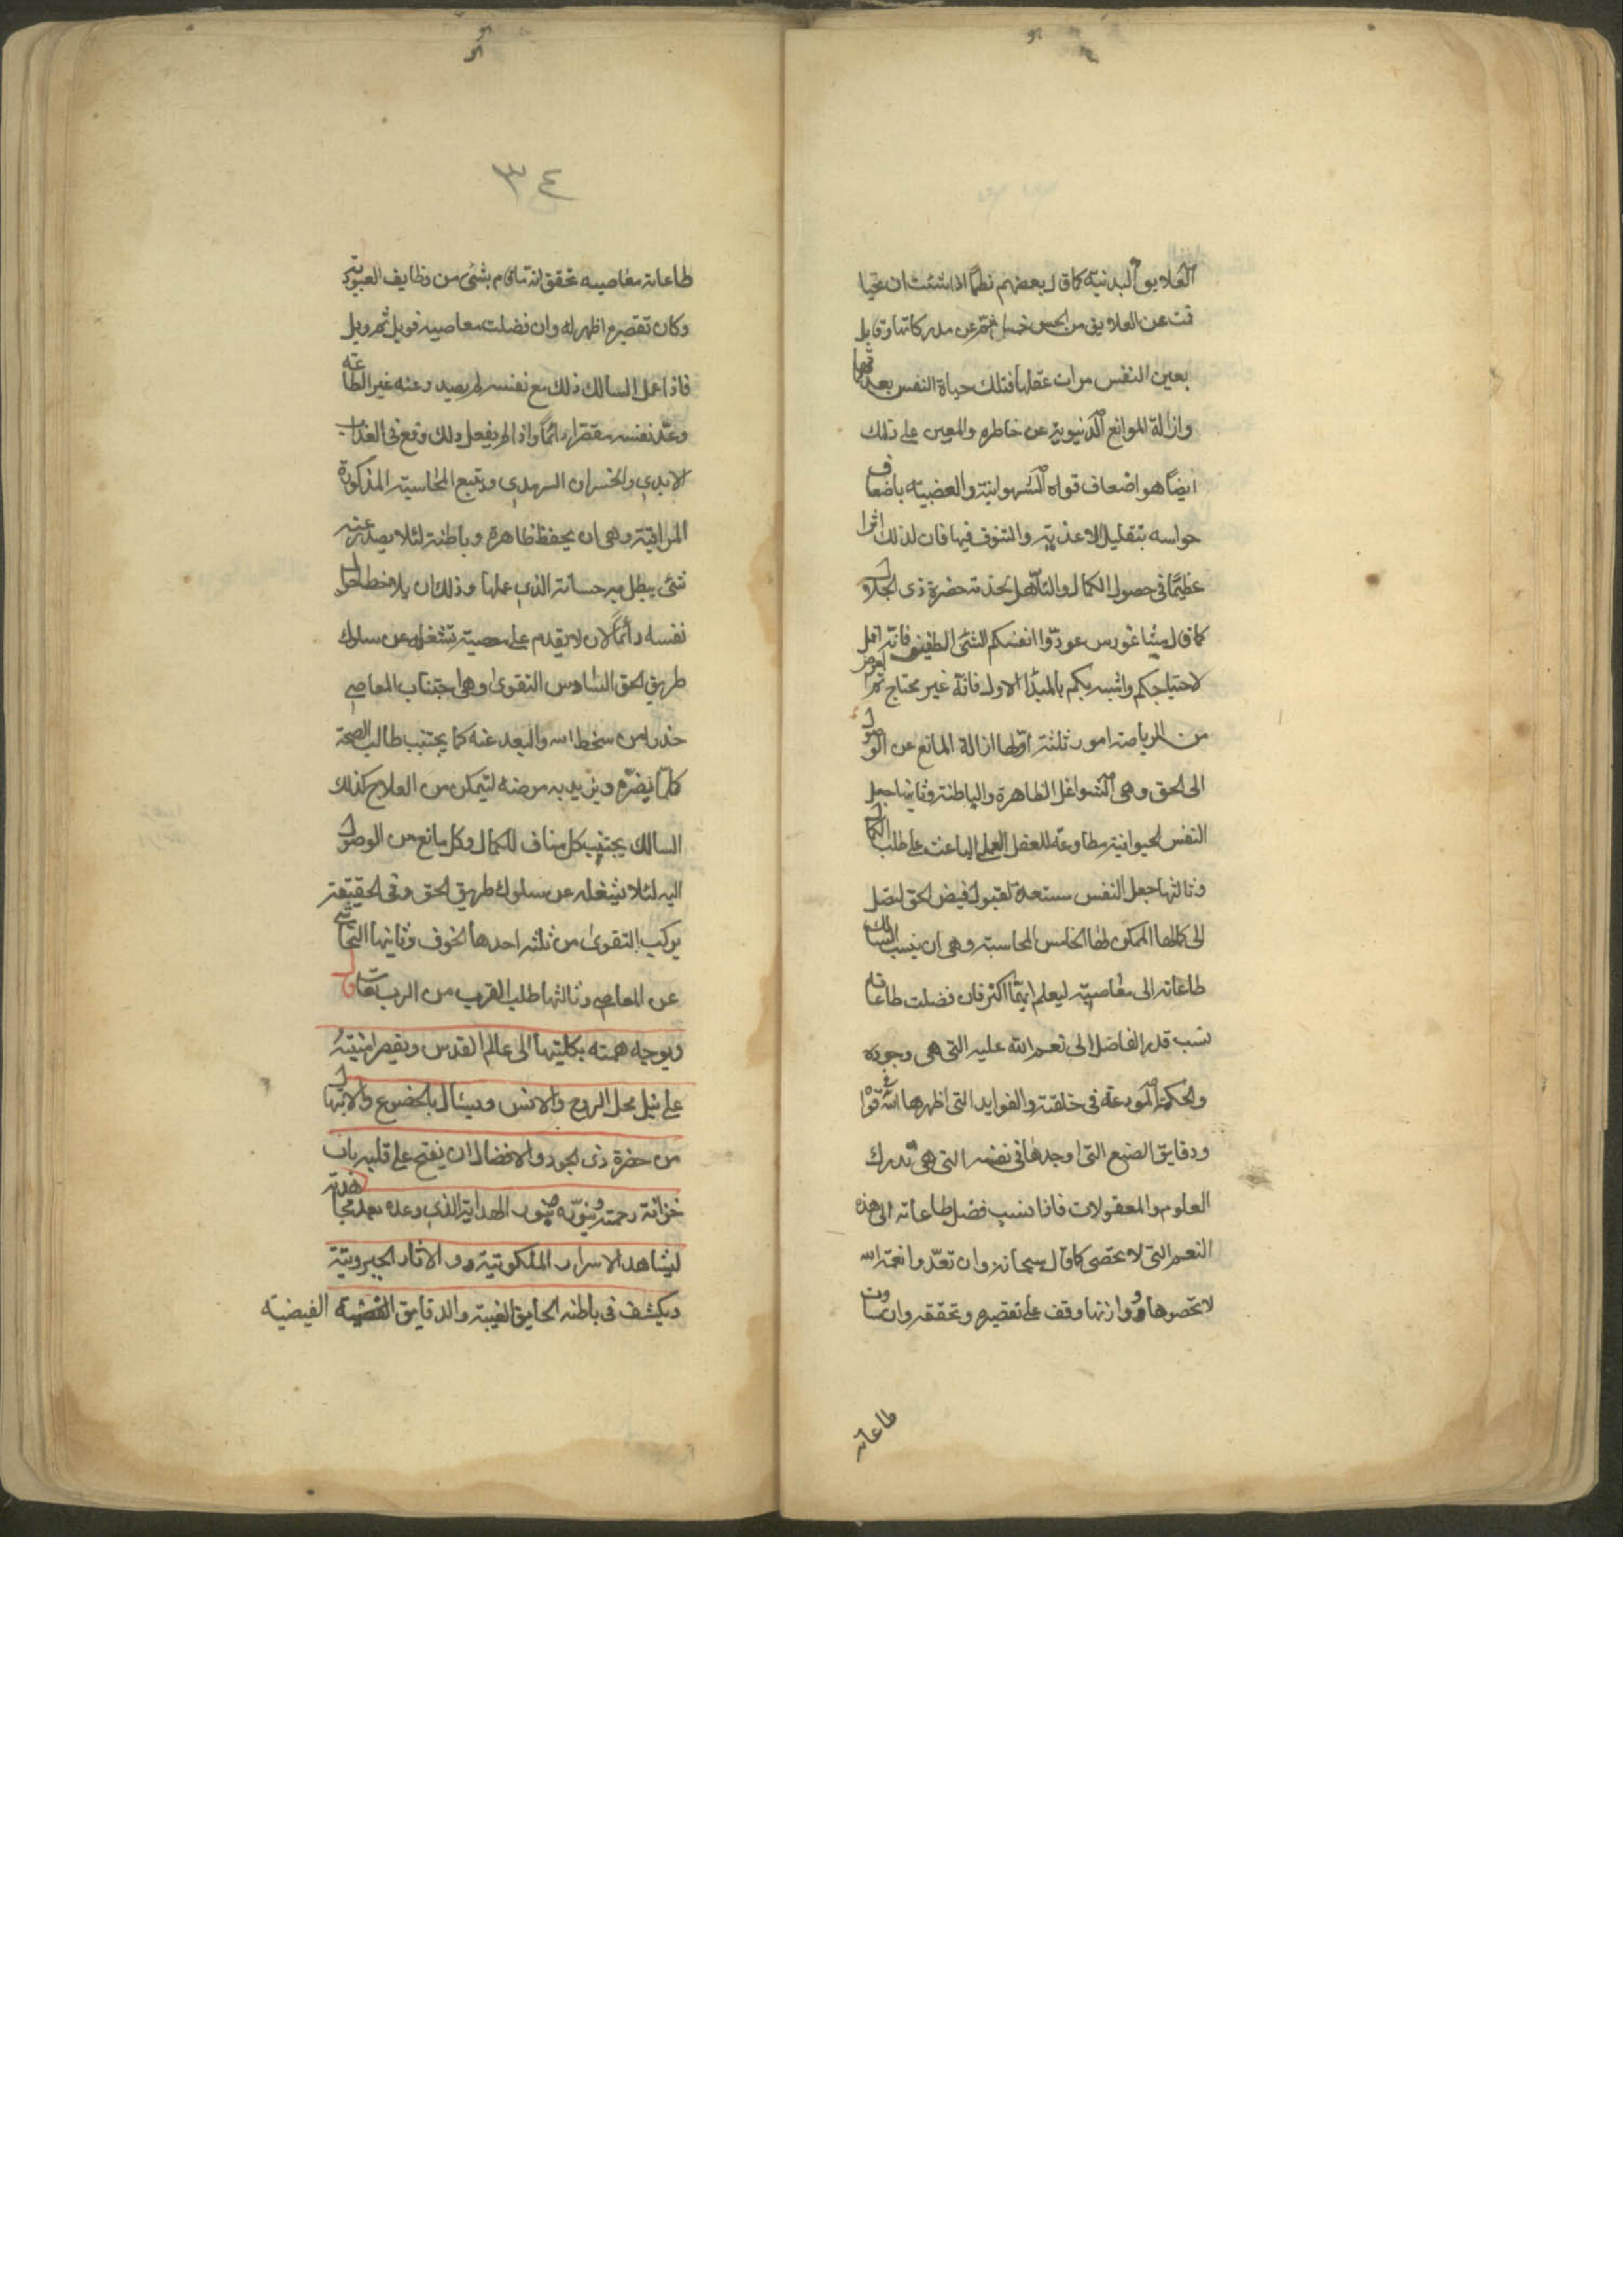 العلايق البدنية كما قال بعضهم نظما اذا شئت ان تحيا
فمت عن العلايق من الحس خمسا ثم عن مدركاتها وقابل
بعين النفس مرات عقلها فتلك حياة النفس بعد
وازالة الموانع الدنيوية عن خاطره والمعين على ذلك
ايضا هو اضعاف قواه الشهوانية والغضبية باضعاف
حواسه بتقليل الاغذية والتنوق فيها فان لذلك اثرا
عظيما في حصول الكمال والتأهل لخدمة حضرة ذي الجلال
كما قال فيثاغورس عودوا انفسكم الشئ الطفيف فانه اقل
لاحتياجكم واشبه بكم بالمبدأ الاول فانه غير محتاج ثم الغرض
من الرياضة امور ثلثة اولها ازالة المانع عن الوصول
الى الحق وهي الشواغل الظاهرة والباطنة وثانيها جعل
النفس الحيوانية مطاوعة للعقل العملي الباعث على طلب الكمال
وثالثها جعل النفس مستعدة لقبول فيض الحق لتصل
الى كمالها الممكن لها الخامس المحاسبة وهي ان ينسب السالك
طاعاته الى معاصيه ليعلم ايهما اكثر فان فضلت طاعاته
نسب قدر الفاضل الى نعم الله عليه التي هي وجوده
والحكمة المودعة في خلقته والفوايد التي اظهرها الله في قواه
ودقايق الصنع التي اوجدها في نفسه التي هي تدرك
العلوم والمعقولات فاذا نسب فضل طاعاته الى هذه
النعم التي لا تحصى كما قال سبحانه وان تعدوا نعمة الله
لا تحصوها ووازنها وقف على تقصيره وتحققه وان ساوت
طاعاته
٣٤
طاعاته معاصيه تحقق انه ما قام بشئ من وظايف العبودية
وكان تقصيره اظهر له وان فضلت معاصيه فويل ثم ويل
فاذا عمل السالك ذلك مع نفسه لم يصدر عنه غير الطاعة
وعد نفسه مقصرا دائما واذا لم يفعل ذلك وقع في العذاب
الابدي والخسران السرمدي ويتبع المحاسبة المذكورة
المراقبة وهي ان يحفظ ظاهره وباطنه لئلا يصدر عنه
شئ يبطل به حسناته الذي عملها وذلك ان يلاحظ احوال
نفسه دائما لان لا يقدم على معصية تشغله عن سلوك
طريق الحق السادس التقوى وهي اجتناب المعاصي
حذرا من سخط الله والبعد عنه كما يجتنب طالب الصحة
كلما يضره ويزيد به مرضه ليتمكن من العلاج كذلك
السالك يجتنب كل مناف للكمال وكل مانع من الوصول
اليه لئلا يشغله عن سلوك طريق الحق وفي الحقيقة
يركب التقوى من ثلثه احدها الخوف وثانيها التحاشي
عن المعاصي وثالثها طلب القرب من الرب تعالى
ويوجه همته بكليتها الى عالم القدس ويقصر امنيته
على نيل محل الروح والانس ويسئال بالخضوع والابتهال
من حضرة ذي الجود والافضال ان يفتح على قلبه باب
خزانة رحمته وينوره بنور الهداية الذي وعده بعد مجاهدته
ليشاهد الاسرار الملكوتية والاثار الجبروتية
ويكشف في باطنه الحقايق الغيبية والدقايق الفيضية